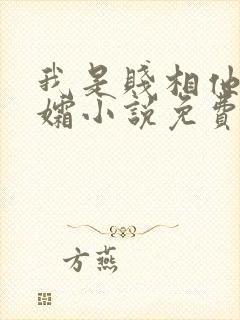 我是賤相他
孀小說免費
方燕